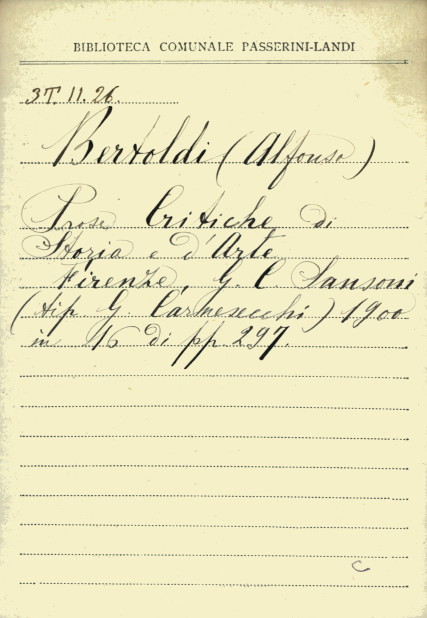 BIBLIOTECA COMUNALE PASSERINI-LANDI
3T. 11. 26.
Bertoldi (Alfonso)
Prose Critiche di
Storia e d'Arte
Firenze, G. C. Sansoni
(tip G. Carnesecchi) 1900
in 16 di pp 297.
C